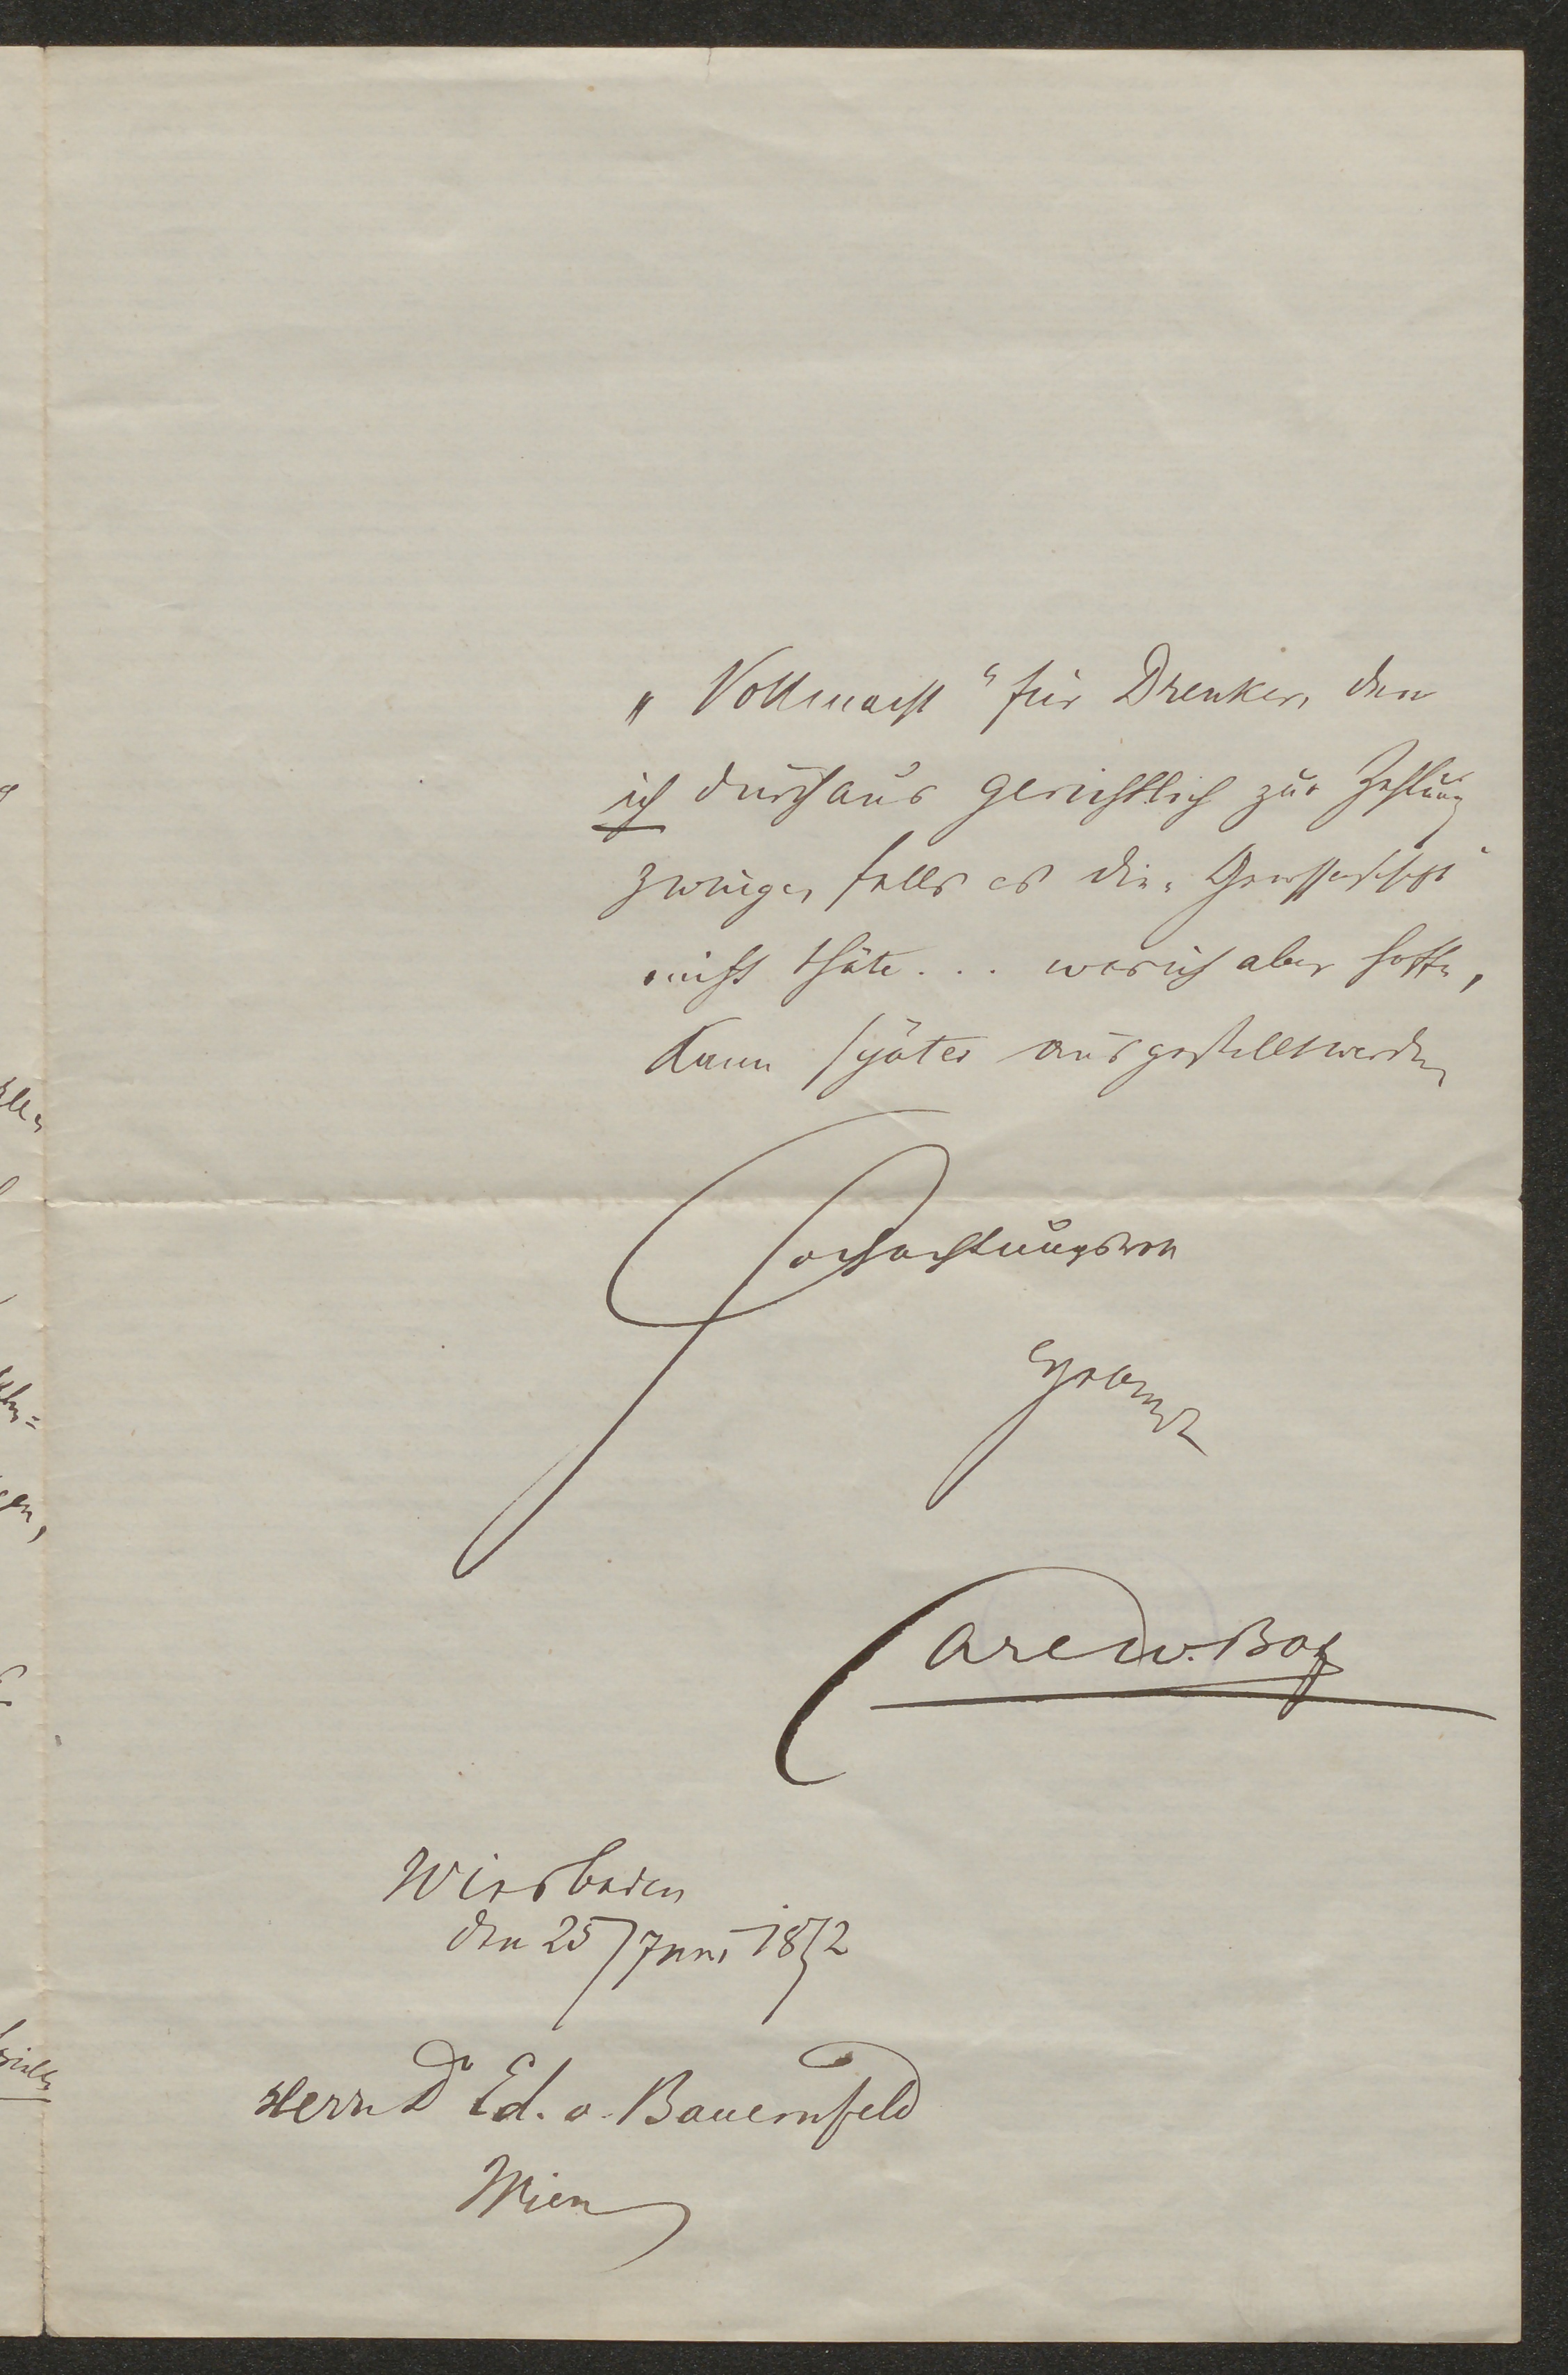 „Vollmacht“ für Drenker, den
ich durchaus gerichtlich zur Zahlung
zwinge, falls es die „Genossenschaft“
nicht thäte... was ich aber hoffe,
kann später ausgestellt werden
Hochachtungsvoll
ergebenst
Carl v. Boz
Wiesbaden
den 25/Juni 1872
Herrn Dr Ed. v. Bauernfeld
Wien